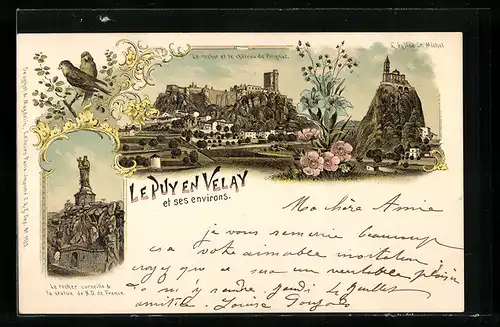 Le rocher et le château de Polignac.
L'Église St Michel
LE PUY EN VELAY
et ses environs.
Le rocher corneille &
la statue de N.D. de France.
Ma chère Amie
je vous remercie beaucoup
de votre aimable invitation
croyez que ce sera un véritable plaisir
de m'y rendre jeudi
amitiés. Louise